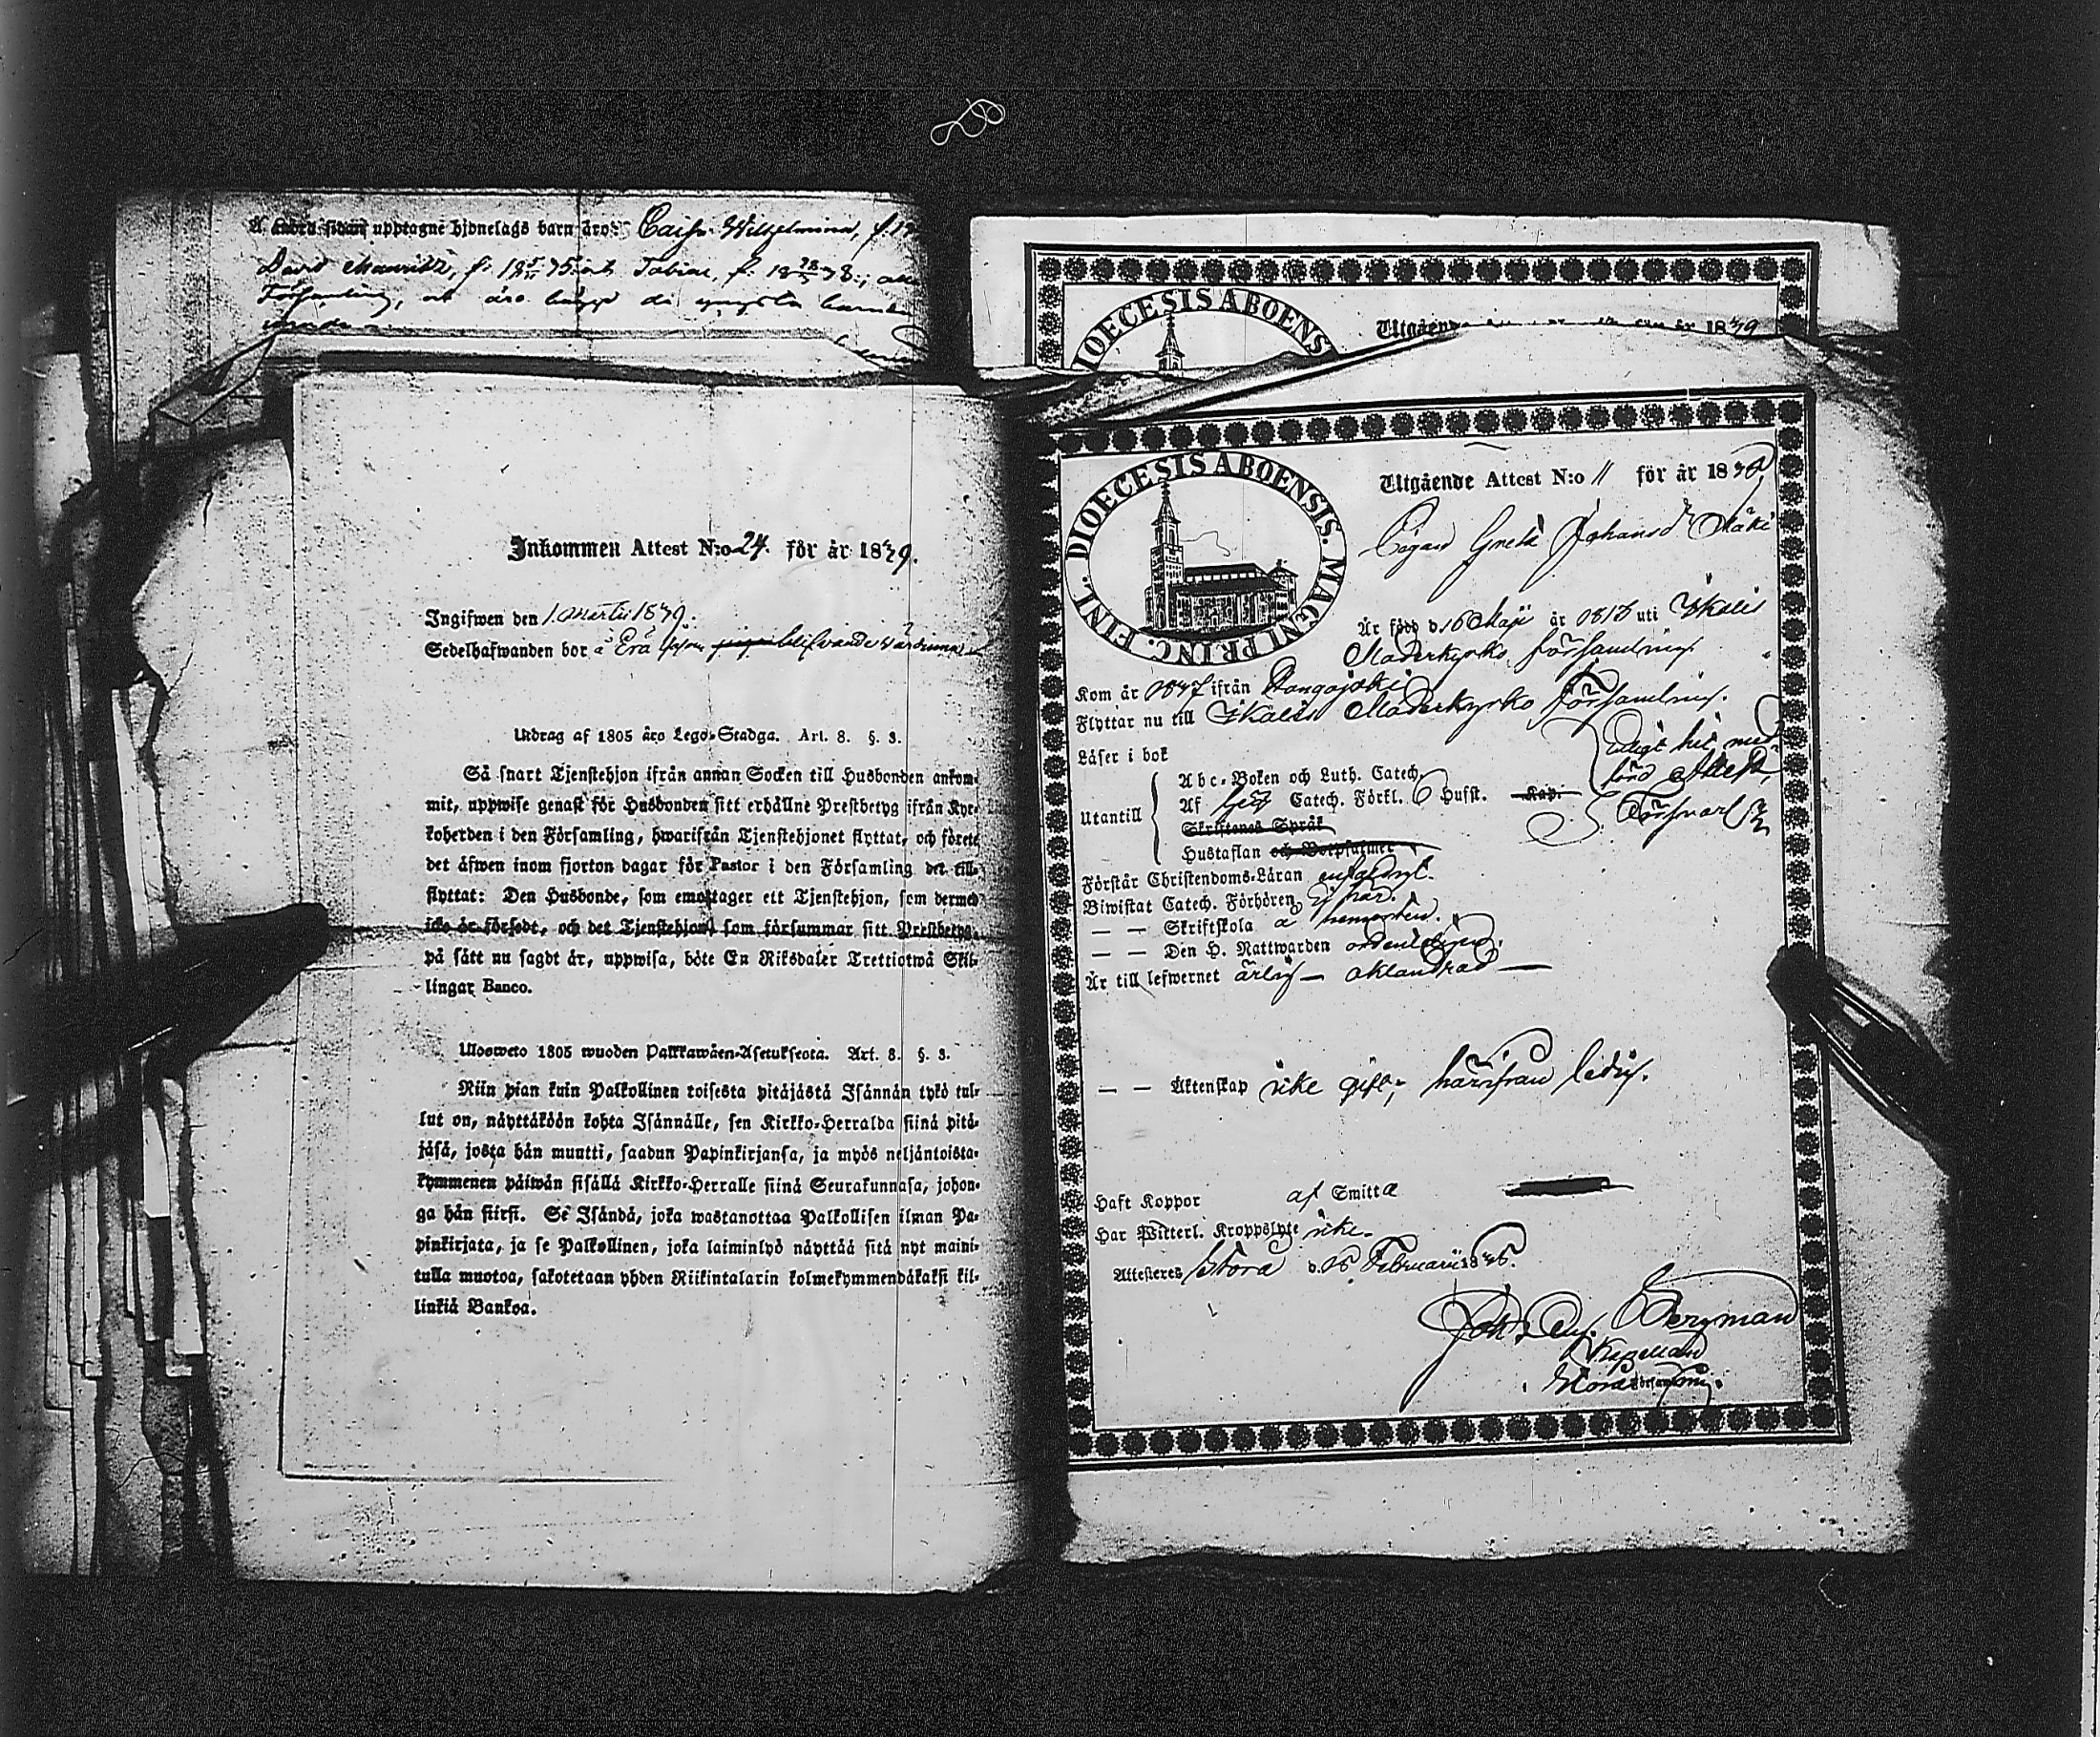 upptagne hjonelags barn äro: Caisa Wilhelmina, f. 18
David Mauritz, f. 18 75 och Tobias, f. 18 78;
Församling, äro de yngsta barnen
Inkommen Attest N:o 24. för år 1849.
Ingifwen den 1. Martii 1849.
Sedelhafwanden bor å Erä blifvande värdinna
Utdrag af 1805 års Lego-Stadga. Art. 8. §. 3.
Så snart Tjenstehjon ifrån annan Socken till Husbonden ankom-
mit, uppwise genast för Husbonden sitt erhållne Prestbetyg ifrån Kyr-
koherden i den Församling, hwarifrån Tjenstehjonet flyttat, och förete
det äfwen inom fjorton dagar för Pastor i den Församling det till-
flyttat: Den Husbonde, som emottager ett Tjenstehjon, som dermed
icke är försedt, och det Tjenstehjon, som försummar sitt Prestbetyg,
på sätt nu sagdt är, uppwisa, böte En Riksdaler Trettiotwå Skil-
lingar Banco.
Ulosweto 1805 wuoden Palkkawäen-Asetuksesta. Art. 8. §. 3.
Niin pian kuin Palkollinen toisesta pitäjästä Isännän tykö tul-
lut on, näyttäköön kohta Isännälle, sen Kirkko-Herralda siinä pitä-
jäsä, josta hän muutti, saadun Papinkirjansa, ja myös neljäntoista-
kymmenen päiwän sisällä Kirkko-Herralle siinä Seurakunnasa, johon-
ga hän siirsi. Se Isändä, joka wastanottaa Palkollisen ilman Pa-
pinkirjata, ja se Palkollinen, joka laiminlyö näyttää sitä nyt maini-
tulla muotoa, sakotetaan yhden Riikintalarin kolmekymmendäkaksi kil-
linkiä Bankoa.
DIOECESIS ABOENS
Utgående 1849
DIOECESIS ABOENSIS. MAGNI PRINC. FINL.
Utgående Attest N:o 11 för år 18
Pigan Greta Johansdr Mäki
Är född d. 16 Maji år 1818 uti Ikalis
Moderkyrko församling.
Kom år 1847 ifrån Kangajoki
Flyttar nu till Ikalis Moderkyrko församling.
Läser i bok
Enligt hit med-
förd Attest,
Försvarl.
Utantill
Abc-Boken och Luth. Catech.
Af Catech. Förkl. 6 Hufst. Kap.
Skriftenes Språk
Hustaflan och Botpsalmer
Förstår Christendoms-Läran enfaldigt.
Biwistat Catech. Förhören ej här.
— — Skriftskola å hemorten.
— — Den H. Nattwarden ordentligen.
Är till lefwernet ärlig — oklandrad —
— — Äktenskap icke gift; härifrån ledig.
Haft Koppor af Smitta
Har Witterl. Kroppslyte icke.
Attesteres Storå d. Februarii 18
Bergman
Kapellan